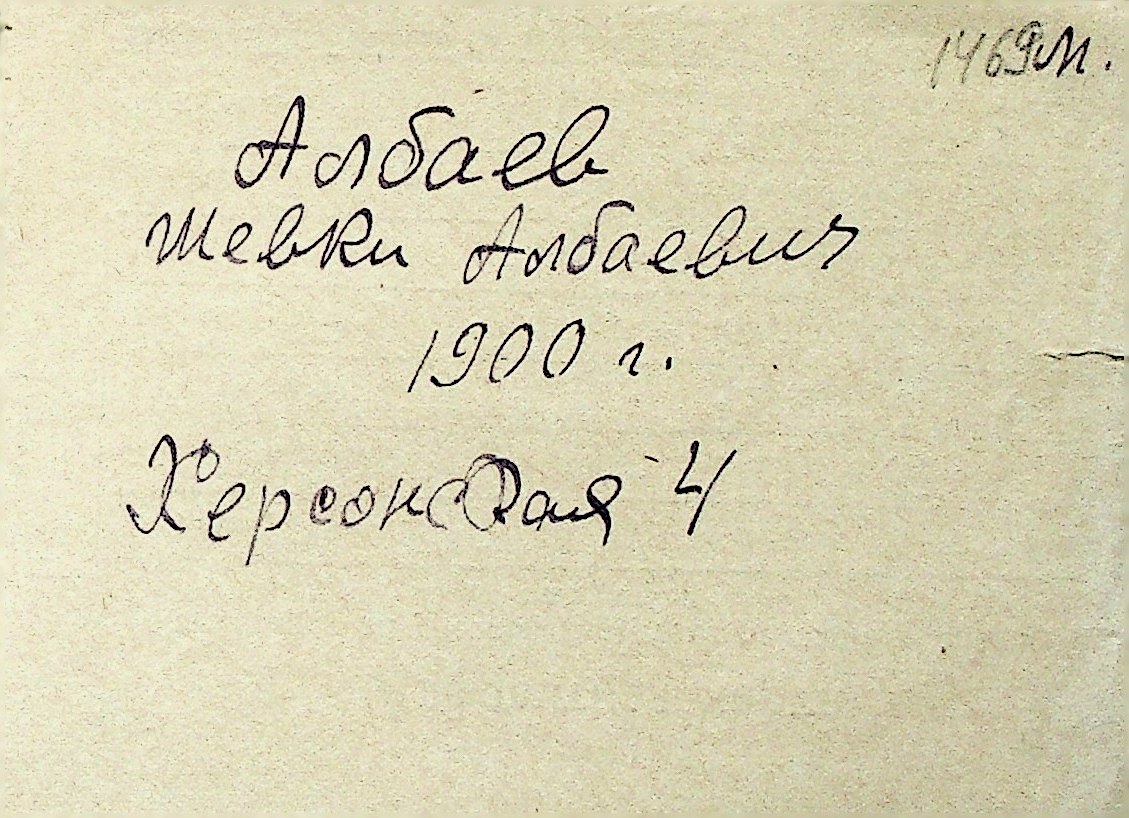 1469м.
Албаев
Шевки Албаевич
1900 г.
Херсонская 4